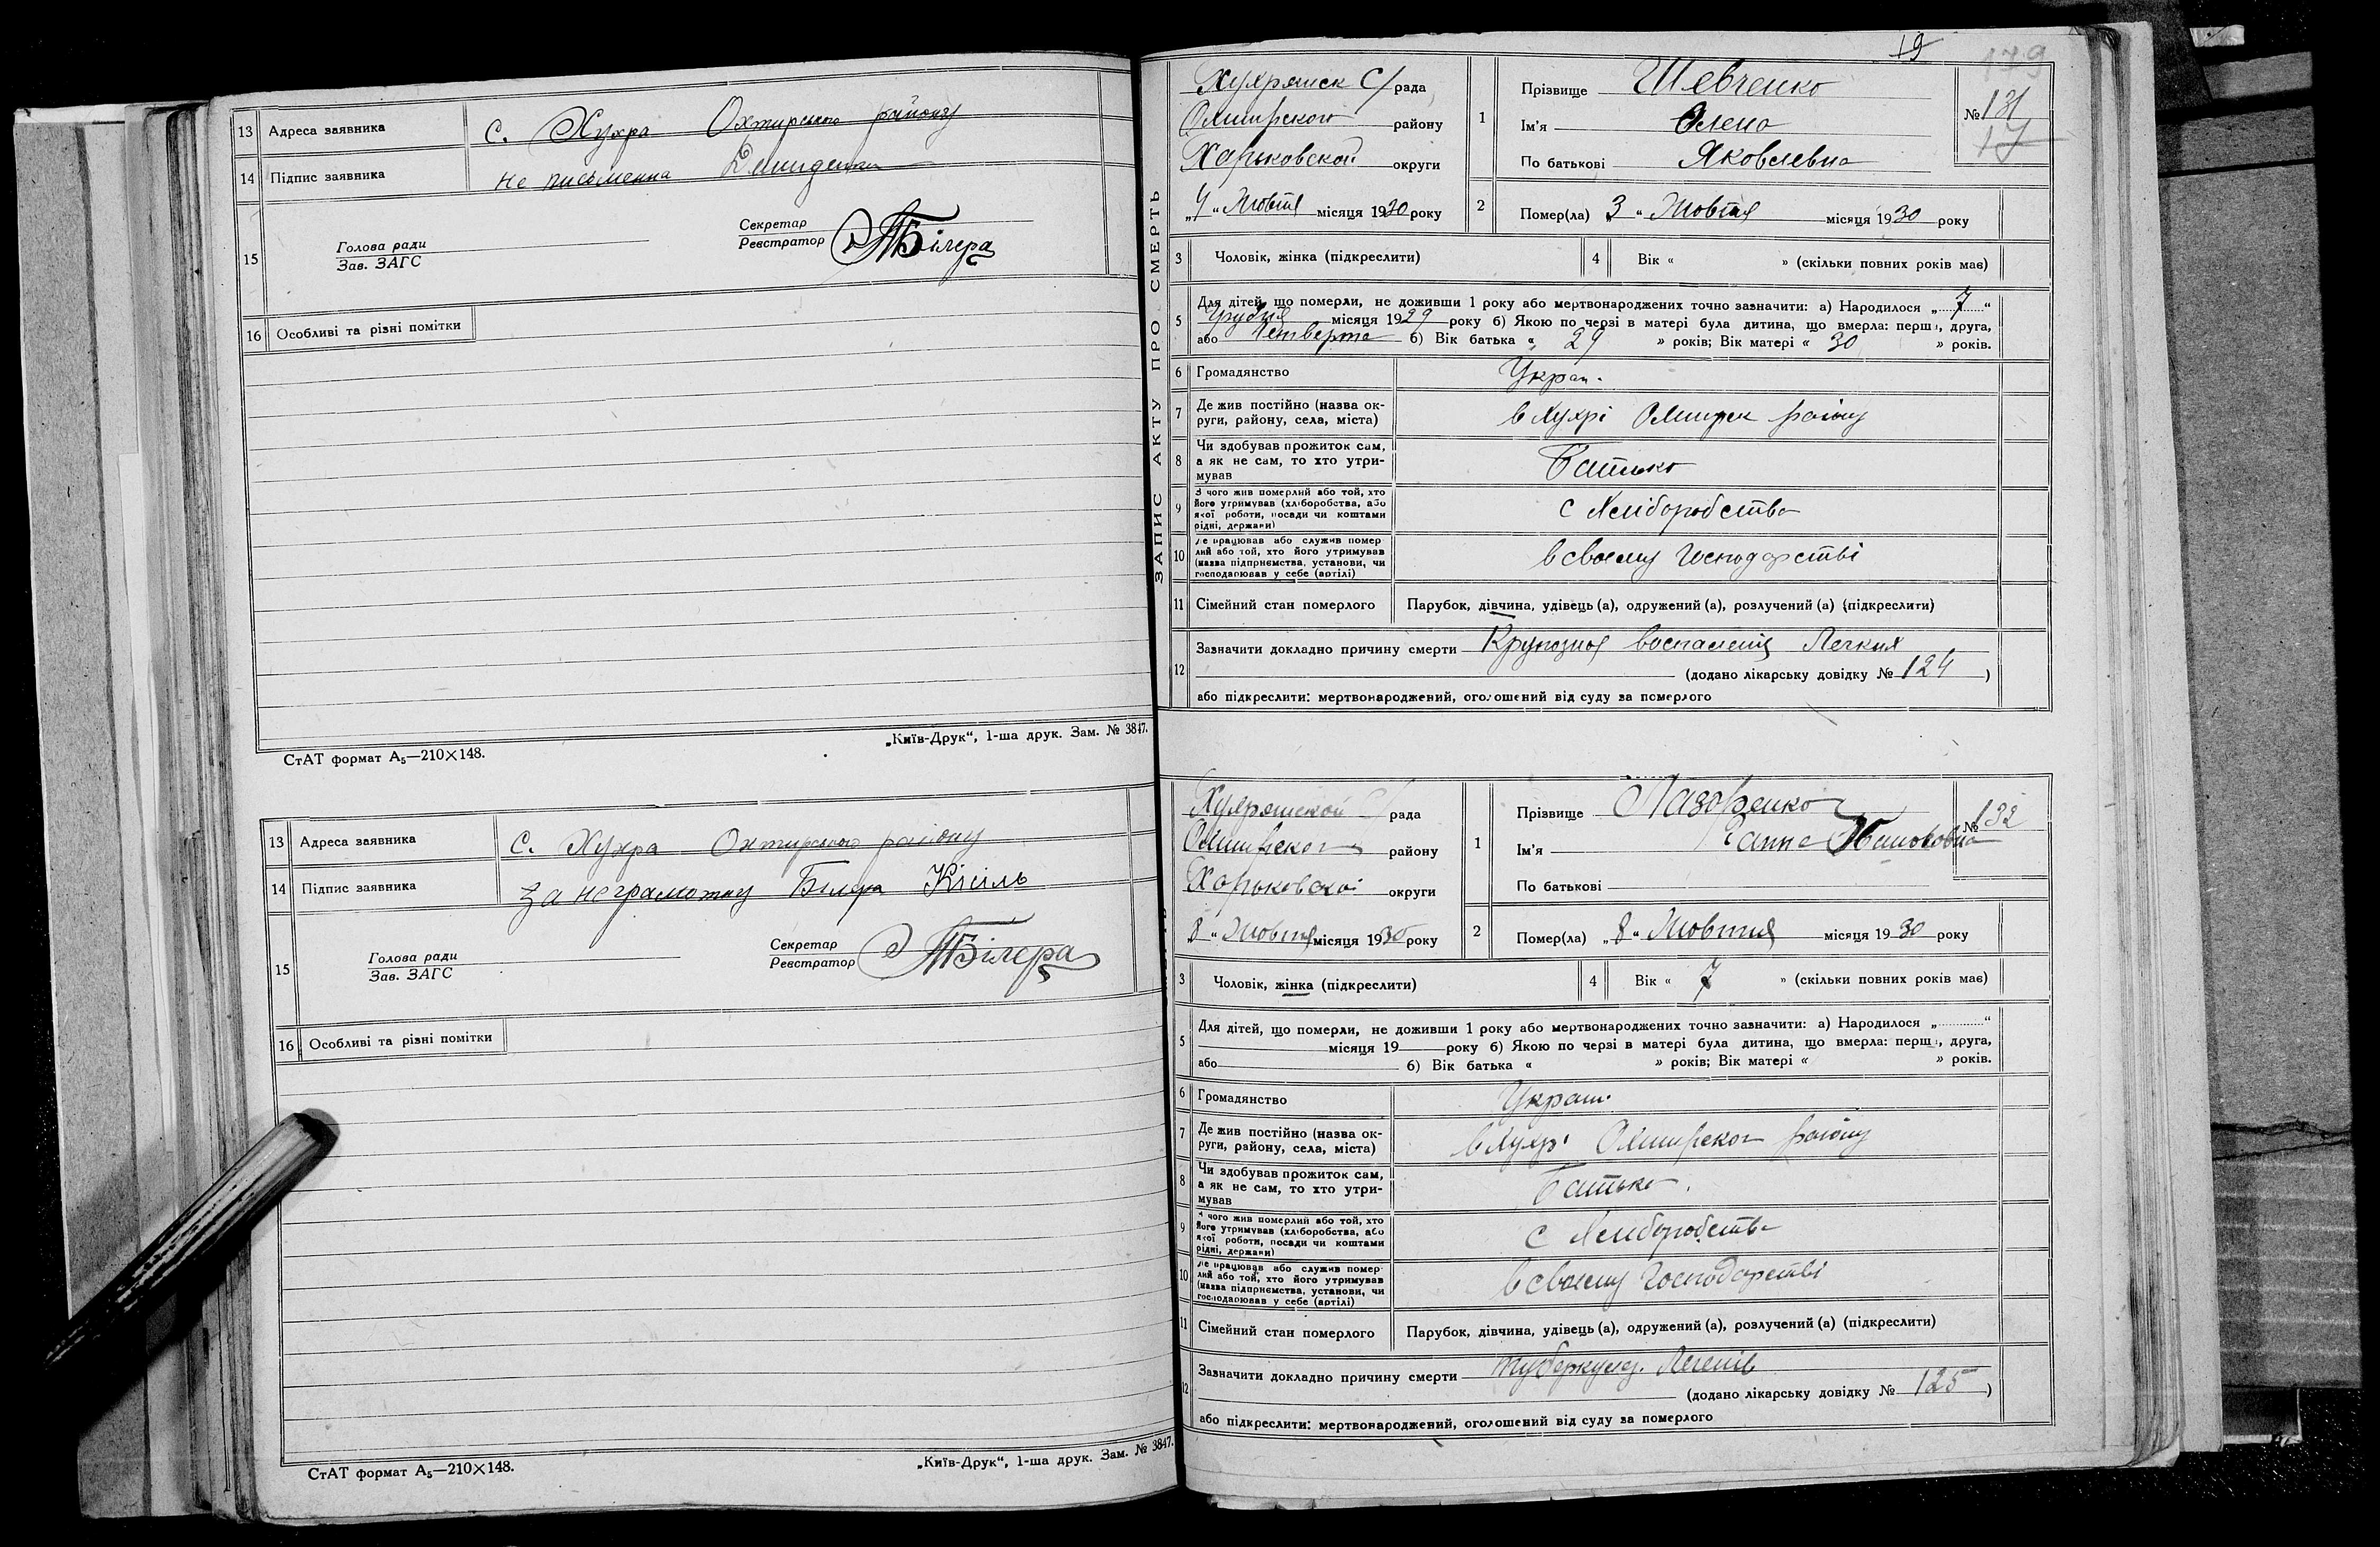 13 Адреса заявника с. Хухра Охтирського району
14 Підпис заявника не письменна
15 Голова ради
Зав. ЗАГС
Секретар
Реєстратор ТБілера
16 Особливі та різні помітки
СтАТ формат А5—210×148.
„Київ-Друк“, 1-ша друк. Зам. № 3847.
13 Адреса заявника с. Хухра Охтирського району
14 Підпис заявника За неграмотну Білера Кисіль
15 Голова ради
Зав. ЗАГС
Секретар
Реєстратор ТБілера
16 Особливі та різні помітки
СтАТ формат А5—210×148.
„Київ-Друк“, 1-ша друк. Зам. № 3847.
19
179
ЗАПИС АКТУ ПРО СМЕРТЬ
Хухрянск С/рада
району
Харьковской округи
„4“ Жовтня місяця 1930 року
1 Прізвище Шевченко
Ім'я Олена
По батькові Яковлевна
№ 131
17
2 Помер(ла) „3“ Жовтня місяця 1930 року
3 Чоловік, жінка (підкреслити)
4 Вік « » (скільки повних років має)
5 Для дітей, що померли, не доживши 1 року або мертвонароджених точно зазначити: а) Народилося „7“
Грудня місяця 1929 року б) Якою по черзі в матері була дитина, що вмерла: перша, друга,
або Четверта б) Вік батька « 29 » років; Вік матері « 30 » років.
6 Громадянство Украи.
7 Де жив постійно (назва округи, району, села, міста) в Хухрі району
8 Чи здобував прожиток сам, а як не сам, то хто утримував Батько
9 З чого жив померлий або той, хто його утримував (хліборобства, або якої роботи, посади чи коштами рідні, держави) с Хліборобства
10 Де працював або служив померлий або той, хто його утримував (назва підприємства, установи, чи господарював у себе (артілі) в своему Господарстві
11 Сімейний стан померлого Парубок, дівчина, удівець (а), одружений (а), розлучений (а) (підкреслити)
12 Зазначити докладно причину смерти Крупозноя воспаления Легких
(додано лікарську довідку № 124 )
або підкреслити: мертвонароджений, оголошений від суду за померлого
Хухрянской С/рада
району
Харьковской округи
„8“ Жовтня місяця 1930 року
1 Прізвище Лазоренко
Ім'я Ганна
По батькові
№ 132
2 Помер(ла) „8“ Жовтня місяця 1930 року
3 Чоловік, жінка (підкреслити)
4 Вік « 7 » (скільки повних років має)
5 Для дітей, що померли, не доживши 1 року або мертвонароджених точно зазначити: а) Народилося „ “
місяця 19 року б) Якою по черзі в матері була дитина, що вмерла: перша, друга,
або б) Вік батька « » років; Вік матері « » років.
6 Громадянство Украи.
7 Де жив постійно (назва округи, району, села, міста) в Хухрі району
8 Чи здобував прожиток сам, а як не сам, то хто утримував Батько.
9 З чого жив померлий або той, хто його утримував (хліборобства, або якої роботи, посади чи коштами рідні, держави) с Хліборобства
10 Де працював або служив померлий або той, хто його утримував (назва підприємства, установи, чи господарював у себе (артілі) в своему Господарстві
11 Сімейний стан померлого Парубок, дівчина, удівець (а), одружений (а), розлучений (а) (підкреслити)
12 Зазначити докладно причину смерти туберкулез. Легенів
(додано лікарську довідку № 125 )
або підкреслити: мертвонароджений, оголошений від суду за померлого